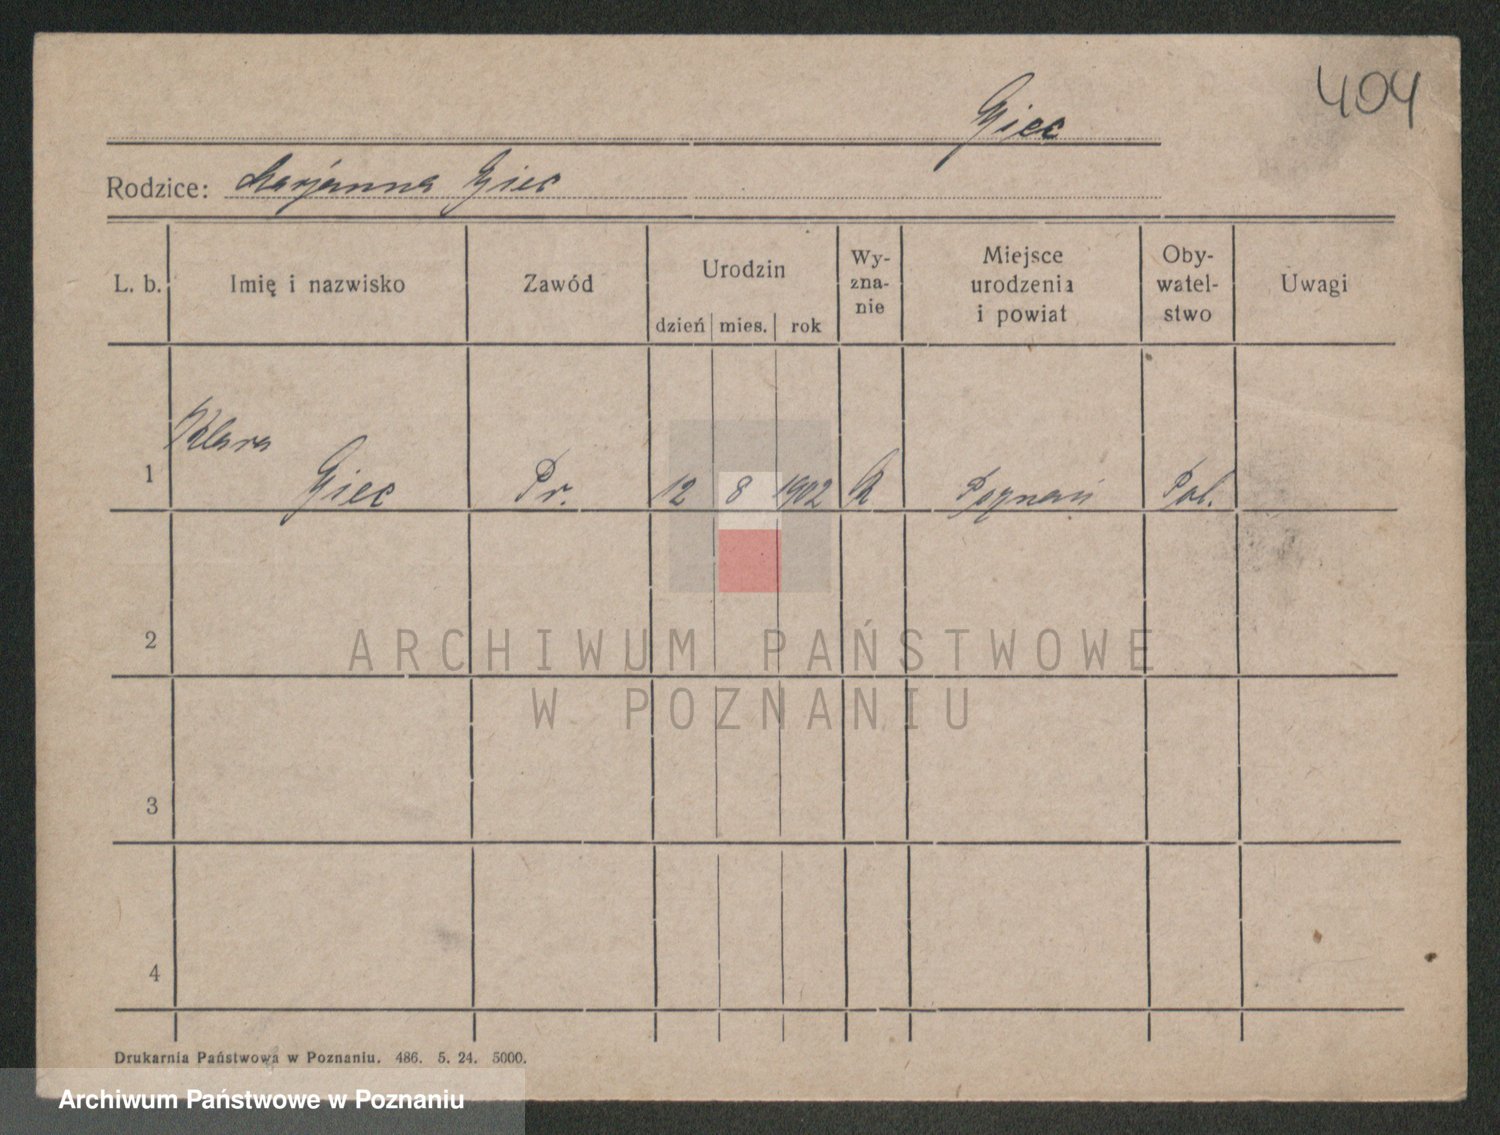 404
Giec
Rodzice: Marjanna Giec
L. b. Imię i nazwisko Zawód Urodzin dzień mies. rok Wy-zna-nie Miejsce urodzenia i powiat Oby-watel-stwo Uwagi
Klara
1 Giec Pr. 12 8 1902 R Poznań Pol.
2
ARCHIWUM PAŃSTWOWE
W POZNANIU
3
4
Drukarnia Państwowa w Poznaniu. 486. 5. 24. 5000.
Archiwum Państwowe w Poznaniu